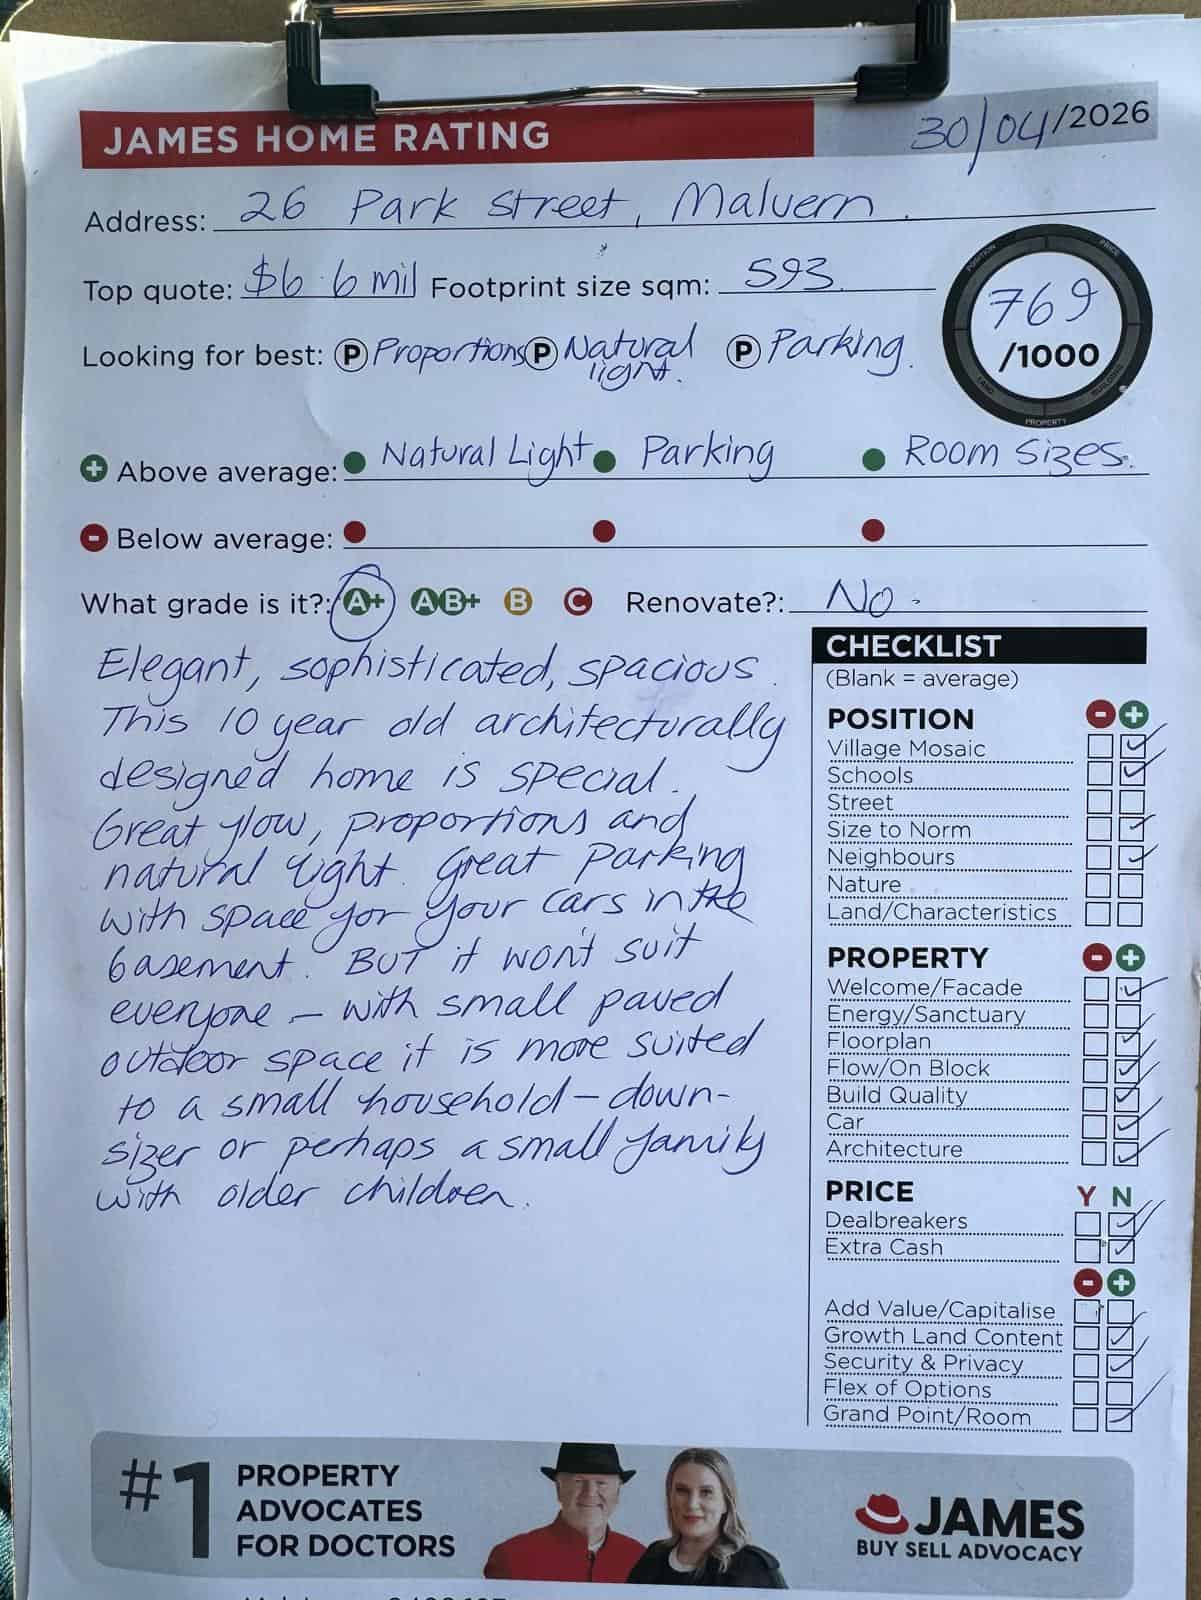 JAMES HOME RATING 30/04/2026
Address: 26 Park Street, Malvern.
Top quote: $6.6 mil Footprint size sqm: 593.
POSITION PRICE BUILDING PROPERTY LAND
769
/1000
Looking for best: P Proportions P Natural light. P Parking.
+ Above average: Natural Light Parking Room Sizes.
- Below average:
What grade is it?: A+ AB+ B C Renovate?: No.
Elegant, sophisticated, spacious.
This 10 year old architecturally
designed home is special.
Great flow, proportions and
natural light. Great parking
with space for four cars in the
basement. BUT it won't suit
everyone – with small paved
outdoor space it is more suited
to a small household – down-
sizer or perhaps a small family
with older children.
CHECKLIST
(Blank = average)
POSITION - +
Village Mosaic
Schools
Street
Size to Norm
Neighbours
Nature
Land/Characteristics
PROPERTY - +
Welcome/Facade
Energy/Sanctuary
Floorplan
Flow/On Block
Build Quality
Car
Architecture
PRICE Y N
Dealbreakers
Extra Cash
- +
Add Value/Capitalise
Growth Land Content
Security & Privacy
Flex of Options
Grand Point/Room
#1 PROPERTY
ADVOCATES
FOR DOCTORS
JAMES
BUY SELL ADVOCACY